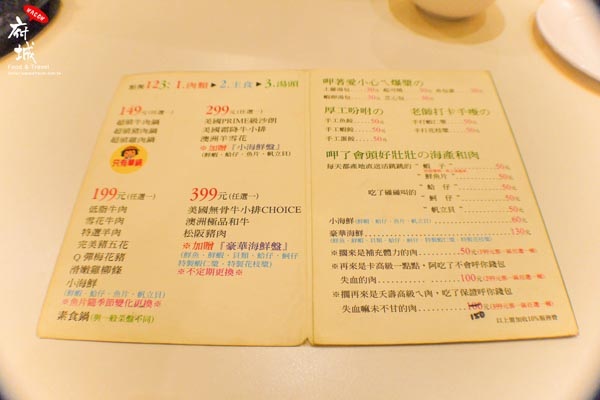 府城
Food & Travel
點餐123: 1.肉類 ▶ 2.主食 ▶ 3.湯頭
149元(任選一)
超嫩牛肉鍋
超嫩豬肉鍋
超嫩雞肉鍋
299元(任選一)
美國PRIME級沙朗
美國霜降牛小排
澳洲羊雪花
※加贈『小海鮮盤』
(鮮蝦、蛤仔、魚片、帆立貝)
199元(任選一)
低脂牛肉
雪花牛肉
特選羊肉
完美豬五花
Q彈梅花豬
滑嫩雞柳條
小海鮮
(鮮蝦、蛤仔、魚片、帆立貝)
※魚片隨季節變化更換※
素食鍋(與一般菜盤不同)
399元(任選一)
美國無骨牛小排CHOICE
澳洲極品和牛
松阪豬肉
※加贈『豪華海鮮盤』
※不定期更換※
呷著愛小心ㄟ爆漿の
厚工吩咐の
手工魚餃......50元
手工蝦餃......50元
手工蛋餃......50元
老師打卡手痠の
手打花枝漿......50元
呷了會頭好壯壯の海產和肉
每天都產地直送活跳跳的
"鮮魚片"......50元
吃了硞硞叫的
"蛤 仔"......50元
"蚵 仔"......50元
"帆立貝"......50元
小海鮮(鮮蝦、蛤仔、魚片、帆立貝)......60元
豪華海鮮......130元
※擱來是補充體力的肉......50元
※再來是卡高級一點點，阿吃了不會呼你錢包
失血的肉......100元
※擱再來是夭壽高級ㄟ肉，吃了保證呼你錢包
失血嘸未不甘的肉......100元
150
以上需加收10%服務費